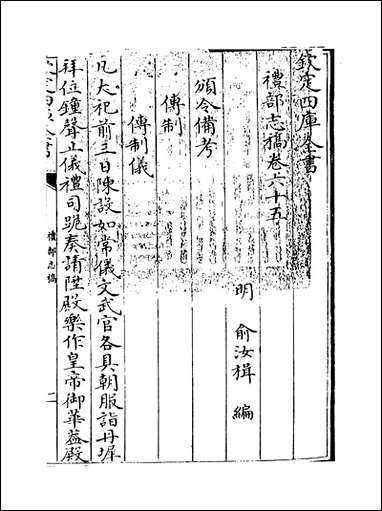 欽定四庫全書
禮部志稿卷六十五
明 俞汝楫 編
頒令備考
傳制
傳制儀
凡大祀前三日陳設如常儀文武官各具朝服詣丹墀
拜位鐘聲止儀禮司跪奏請陞殿樂作皇帝御華蓋殿
禮部志稿